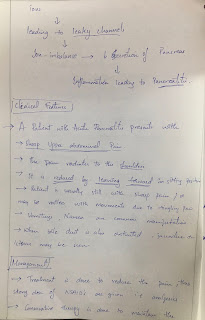 Ions
↓
leading to leaky channels
↓
Ion-imbalance → & Secretion of Pancreas
↓
Inflammation leading to Pancreatitis
Clinical Features
→ A Patient with Acute Pancreatitis presents with
→ Deep Upper abdominal Pain
→ The Pain radiates to the shoulder
→ It is reduced by leaning forward in sitting position
→ Patient is usually still with deep pain / or
may be restless with movements due to
→ Vomiting, Nausea are common manifestation
→ When bile duct is also obstructed, Jaundice
may be seen
Management
→ Treatment is done to reduce the pain, thus
drug of NSAIDs are given i.e. analgesics
→ Conservative therapy is done to maintain the